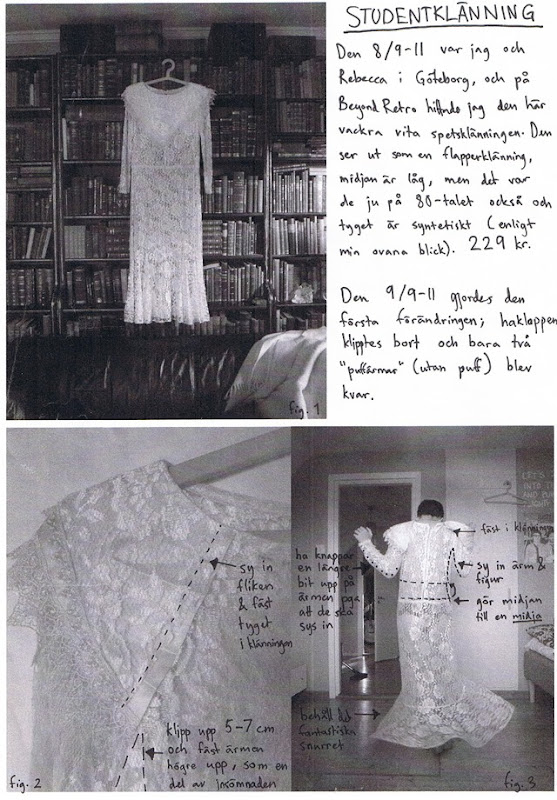 STUDENTKLÄNNING
Den 8/9-11 var jag och
Rebecca i Göteborg, och på
Beyond Retro hittade jag den här
vackra vita spetsklänningen. Den
ser ut som en flapperklänning,
midjan är låg, men det var
de ju på 80-talet också och
tyget är syntetiskt (enligt
min ovana blick). 229 kr.
Den 9/9-11 gjordes den
första förändringen; haklappen
klipptes bort och bara två
"puffärmar" (utan puff) blev
kvar.
fig. 1
sy in
fliken
& fäst
tyget
i klänningen
klipp upp 5-7 cm
och fäst ärmen
högre upp, som en
del av insömnaden
fig. 2
LET'S
INTO
AND
fäst i klänningen
ha knappar
en längre
bit upp på
ärmen pga
att de ska
sys in
sy in ärm &
figur
gör midjan
till en midja
behåll det
fantastiska
snurret
fig. 3